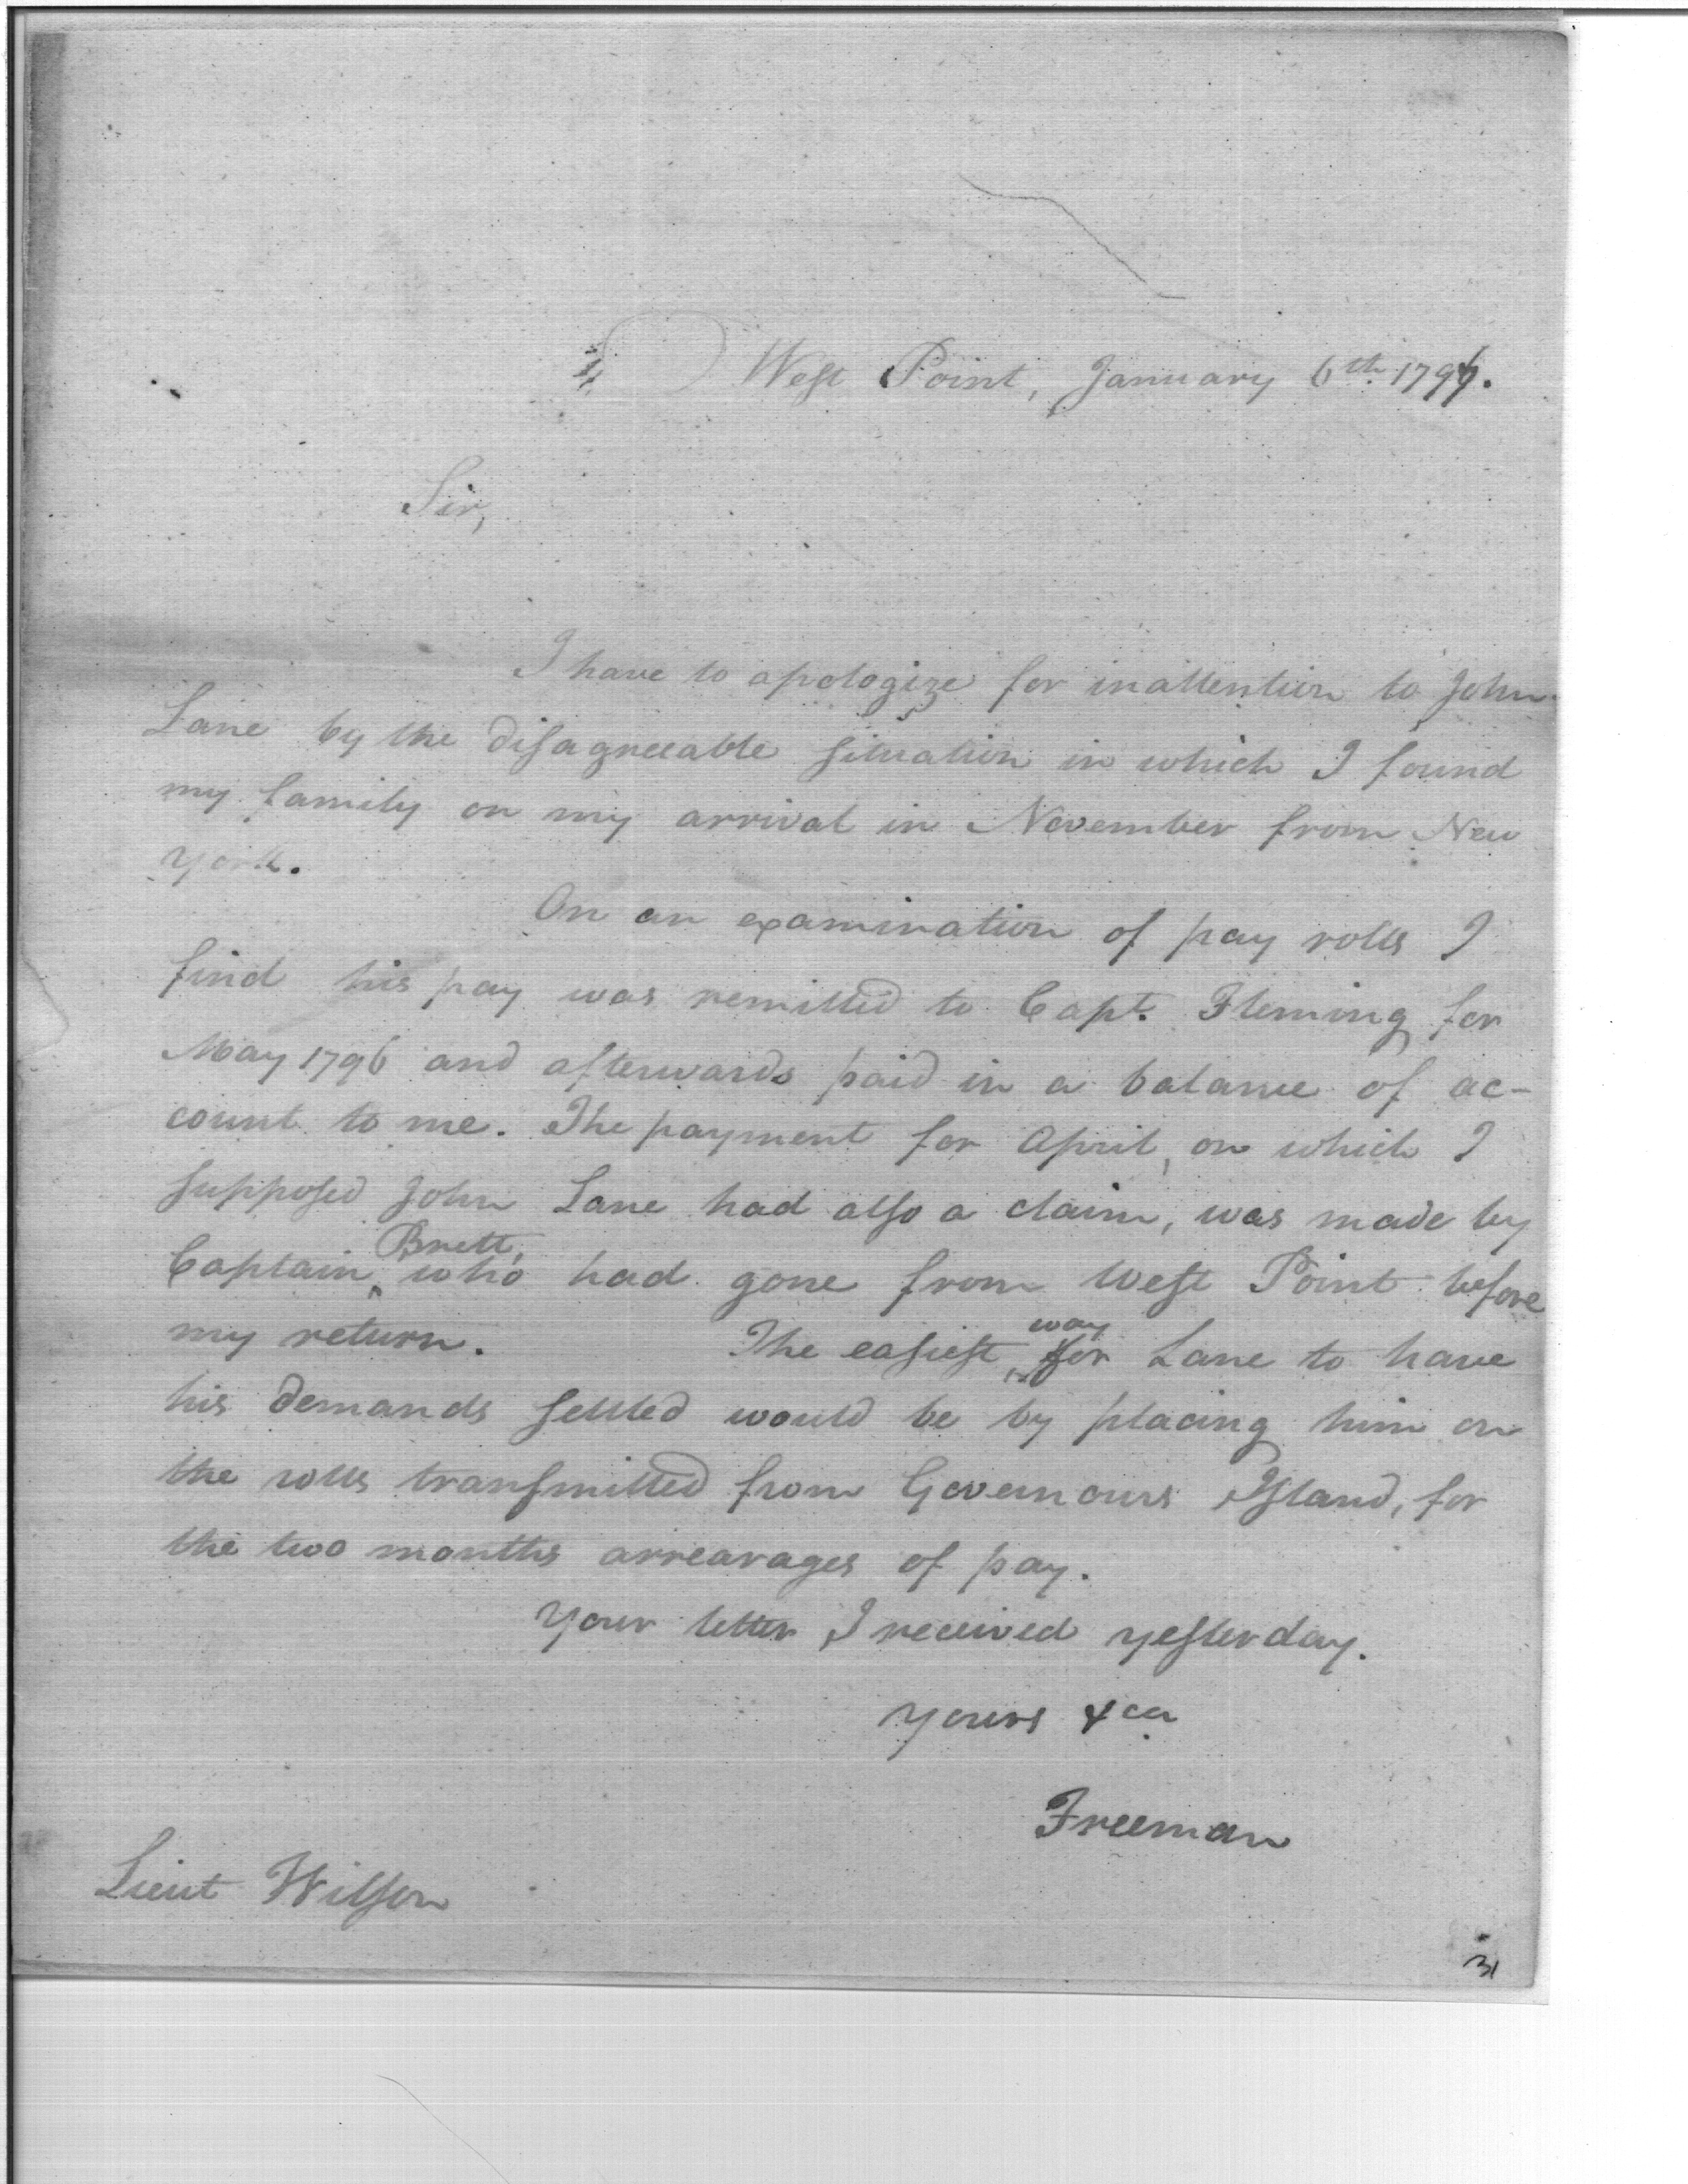 West Point, January 6th 1797.
Sir,
I have to apologize for inattention to John
Lane by the disagreeable situation in which I found
my family on my arrival in November from New
York.
On an examination of pay rolls I
find his pay was remitted to Capt. Fleming for
May 1796 and afterwards paid in a balance of ac-
count to me. The payment for April, on which I
supposed John Lane had also a claim, was made by
Brett,
Captain ‸ who had gone from West Point before
way
my return. The easiest ‸ for Lane to have
his demands settled would be by placing him on
the rolls transmitted from Governours Island, for
the two months arrearages of pay.
Your letter I received yesterday.
Yours &ca
Freeman
Lieut Wilson
31